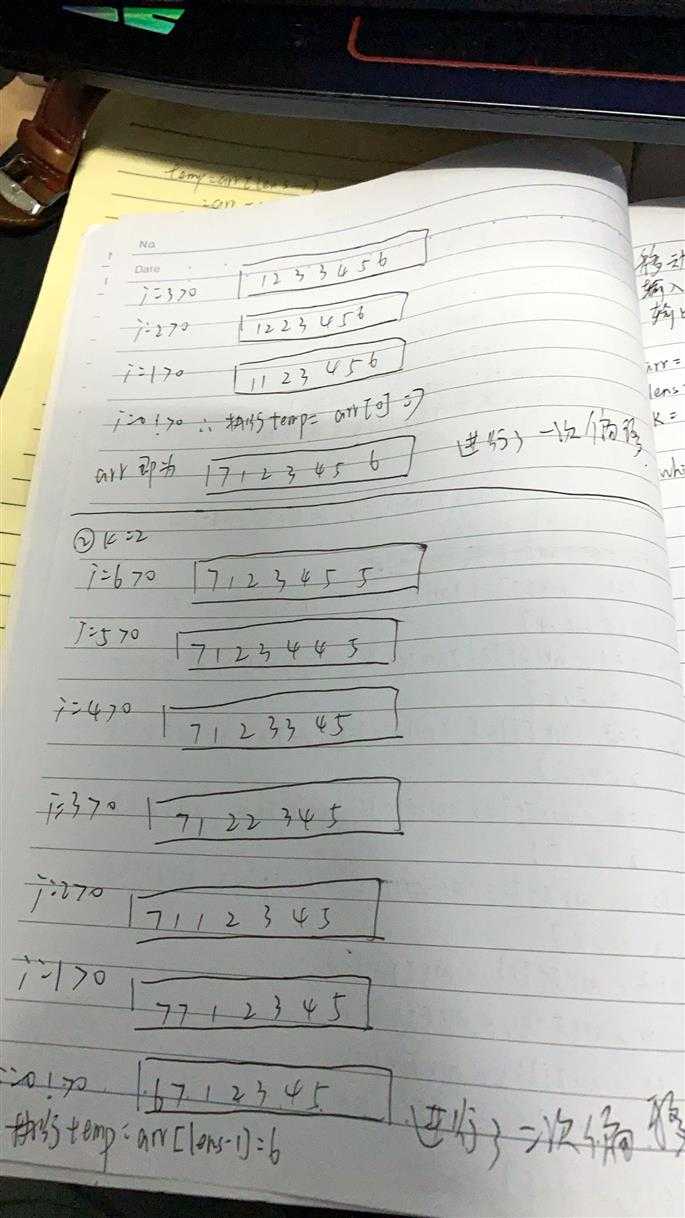 temp=arr[lens-1]
No.
Date
i=3>0 1 2 3 3 4 5 6
i=2>0 1 2 2 3 4 5 6
i=1>0 1 1 2 3 4 5 6
i=0!>0 ∴ 执行temp= arr[0]=7
arr 即为 7 1 2 3 4 5 6 进行了一次偏移
② K=2
i=6>0 7 1 2 3 4 5 5
i=5>0 7 1 2 3 4 4 5
i=4>0 7 1 2 3 3 4 5
i=3>0 7 1 2 2 3 4 5
i=2>0 7 1 1 2 3 4 5
i=1>0 7 7 1 2 3 4 5
i=0!>0 6 7 1 2 3 4 5 进行了二次偏移
执行temp=arr[lens-1]=6
移动
输入
输出
arr=
lens=
K=
whi